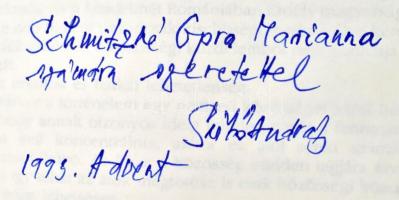 Schmitzné Gpra Marianna
számára szeretettel
Sütő András
1993. Advent